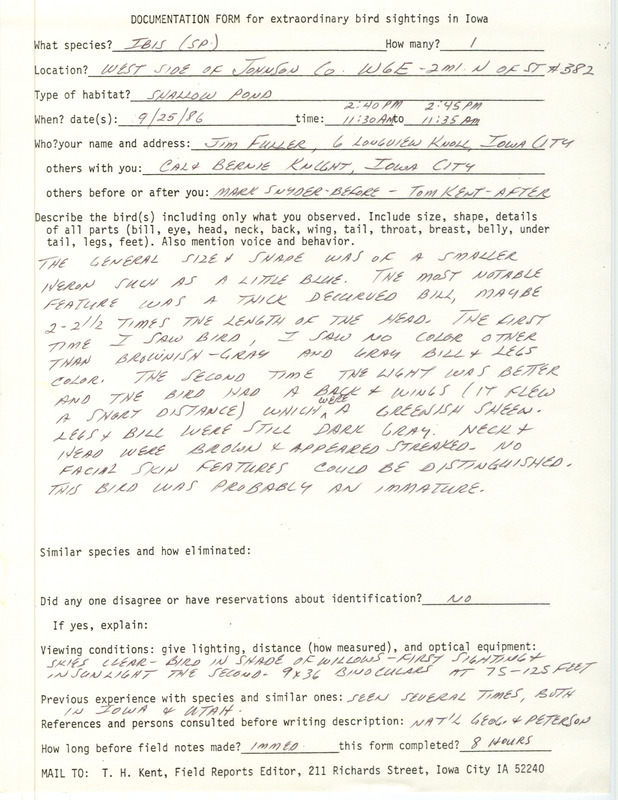 DOCUMENTATION FORM for extraordinary bird sightings in Iowa
What species? IBIS (SP.) How many? 1
Location? WEST SIDE OF JOHNSON CO. WGE - 2 MI. N OF ST #382
Type of habitat? SHALLOW POND
2:40 PM 2:45 PM
When? date(s): 9/25/86 time: 11:30 AM to 11:35 AM
Who?your name and address: JIM FULLER, 6 LONGVIEW KNOLL, IOWA CITY
others with you: CAL & BERNIE KNIGHT, IOWA CITY
others before or after you: MARK SNYDER-BEFORE - TOM KENT-AFTER
Describe the bird(s) including only what you observed. Include size, shape, details
of all parts (bill, eye, head, neck, back, wing, tail, throat, breast, belly, under
tail, legs, feet). Also mention voice and behavior.
THE GENERAL SIZE & SHAPE WAS OF A SMALLER
HERON SUCH AS A LITTLE BLUE. THE MOST NOTABLE
FEATURE WAS A THICK DECURVED BILL, MAYBE
2-2 1/2 TIMES THE LENGTH OF THE HEAD. THE FIRST
TIME I SAW BIRD, I SAW NO COLOR OTHER
THAN BROWNISH-GRAY AND GRAY BILL & LEGS
COLOR. THE SECOND TIME THE LIGHT WAS BETTER
AND THE BIRD HAD A BACK & WINGS (IT FLEW
A SHORT DISTANCE) WHICH WERE A GREENISH SHEEN.
LEGS & BILL WERE STILL DARK GRAY. NECK &
HEAD WERE BROWN & APPEARED STREAKED. NO
FACIAL SKIN FEATURES COULD BE DISTINGUISHED.
THIS BIRD WAS PROBABLY AN IMMATURE.
Similar species and how eliminated:
Did any one disagree or have reservations about identification? NO
If yes, explain:
Viewing conditions: give lighting, distance (how measured), and optical equipment:
SKIES CLEAR - BIRD IN SHADE OF WILLOWS - FIRST SIGHTING &
IN SUNLIGHT THE SECOND. 9X36 BINOCULARS AT 75-125 FEET
Previous experience with species and similar ones: SEEN SEVERAL TIMES, BOTH
IN IOWA & UTAH.
References and persons consulted before writing description: NAT'L GEOG. & PETERSON
How long before field notes made? IMMED. this form completed? 8 HOURS
MAIL TO: T. H. Kent, Field Reports Editor, 211 Richards Street, Iowa City IA 52240